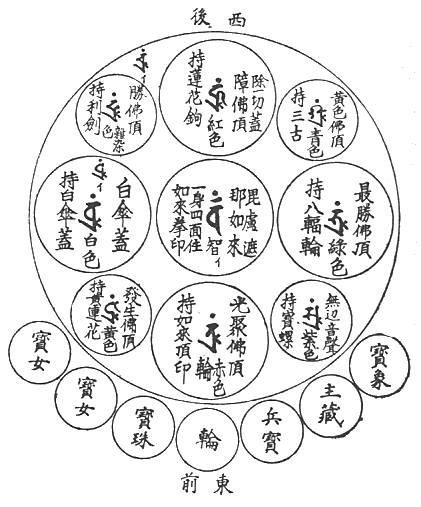 西後
除一切蓋
障佛頂
紅色
持蓮花鉤
黃色佛頂
青色
持三古
勝佛頂
雜染色
持利劍
最勝佛頂
綠色
持八輻輪
毘盧遮
那如來
智ィ
一身四面住
如來拳印
白傘蓋
ィ
白色
持白傘蓋
無辺音聲
紫色
持寶螺
光聚佛頂
赤色
輪
持如來頂印
發生佛頂
黃色
持黃蓮花
寶象
主藏
兵寶
輪
寶珠
寶女
寶女
東前